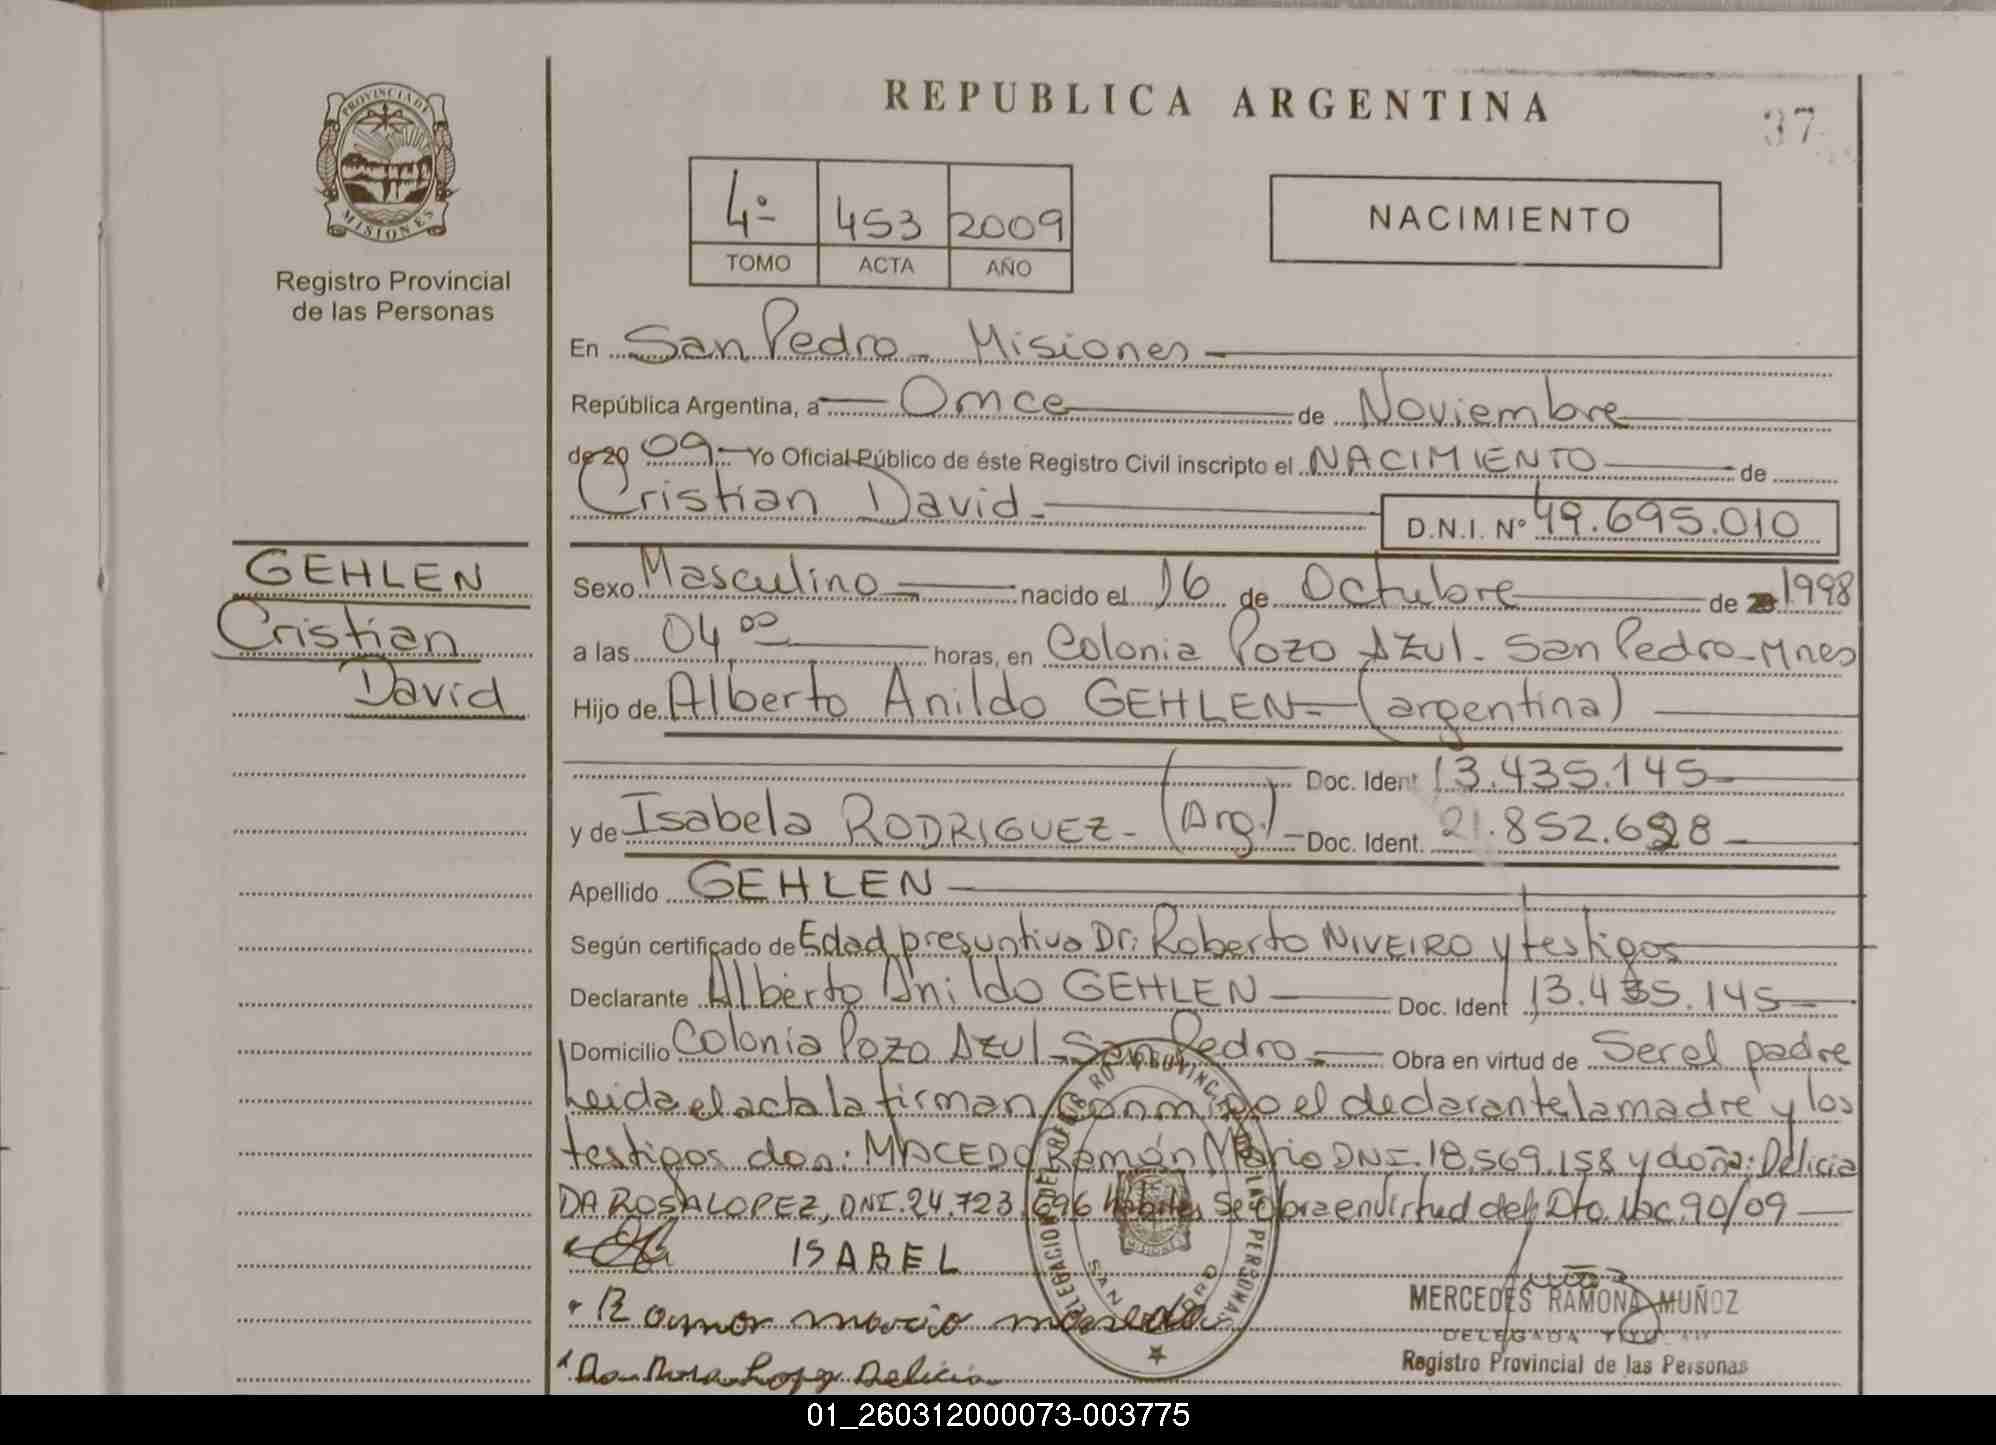 REPUBLICA ARGENTINA
37
PROVINCIA DE MISIONES
Registro Provincial
de las Personas
4º 453 2009
TOMO ACTA AÑO
NACIMIENTO
En San Pedro - Misiones
República Argentina, a Once de Noviembre
de 20 09 Yo Oficial Público de éste Registro Civil inscripto el NACIMIENTO de
Cristian David D.N.I. Nº 49.695.010
GEHLEN
Cristian
David
Sexo Masculino nacido el 16 de Octubre de 1998
a las 04 00 horas, en Colonia Pozo Azul - San Pedro - Mnes
Hijo de Alberto Anildo GEHLEN (argentina)
Doc. Ident 13.435.145
y de Isabela RODRIGUEZ - (Arg.) Doc. Ident. 21.852.628
Apellido GEHLEN
Según certificado de Edad presuntiva Dr: Roberto NIVEIRO y testigos
Declarante Alberto Anildo GEHLEN Doc. Ident 13.435.145
Domicilio Colonia Pozo Azul - San Pedro Obra en virtud de Ser el padre
Leida el acta la firman conmigo el declarante la madre y los
testigos don: MACEDO Ramón Mario DNI. 18.569.158 y doña: Delicia
DA ROSA LOPEZ, DNI. 24.723.696 hábiles Se Obra en virtud del Dto. Nac. 90/09
ISABEL
Ramon mario masedo
Da Rosa Lopez Delicia
DELEGACION DEL REGISTRO PROVINCIAL DE LAS PERSONAS
SAN PEDRO
MISIONES
MERCEDES RAMONA MUÑOZ
DELEGADA TITULAR
Registro Provincial de las Personas
01_260312000073-003775